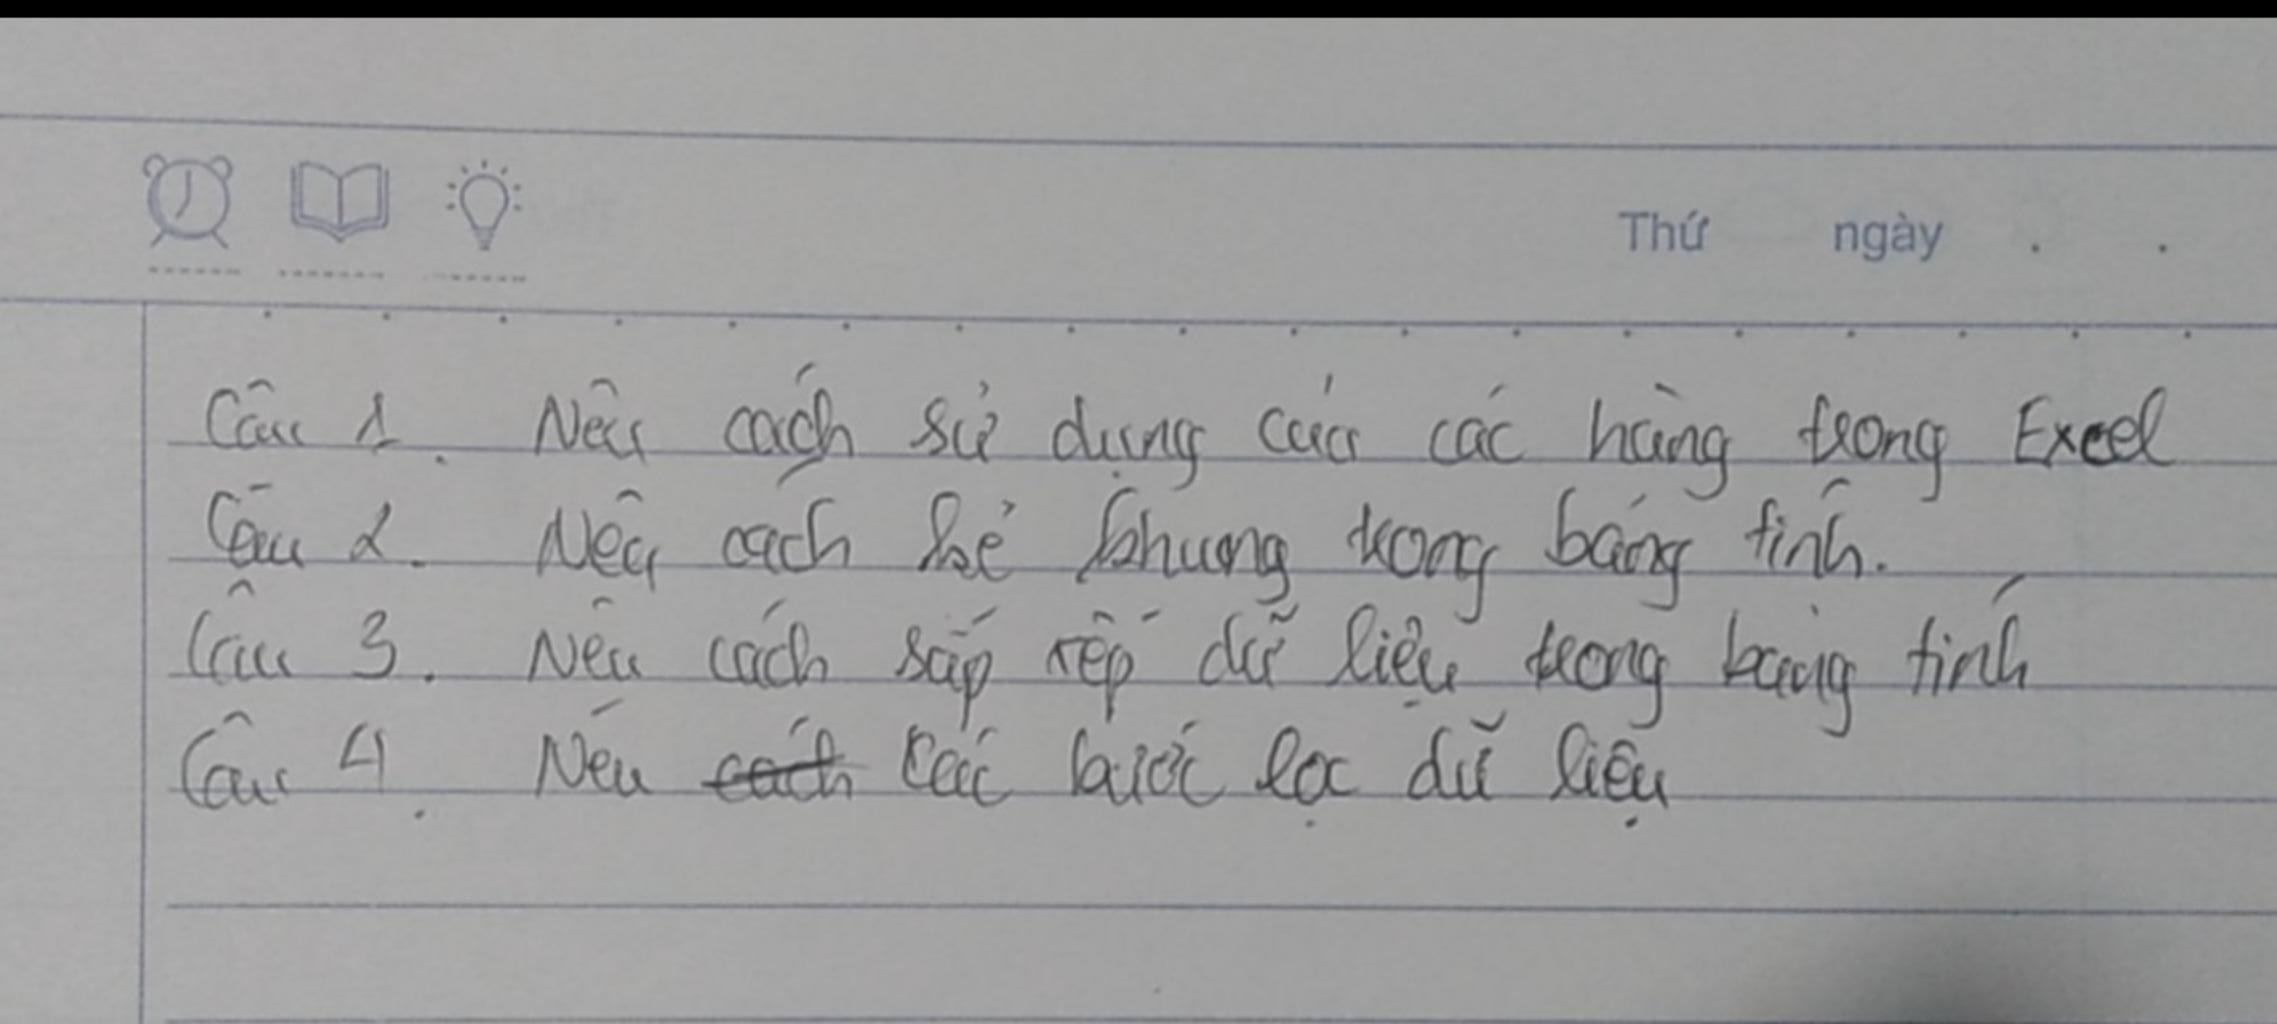 Thứ ngày . .
Câu 1. Nêu cách sử dụng của các hàng trong Excel
Câu 2. Nêu cách kẻ khung trong bảng tính.
Câu 3. Nêu cách sắp xếp dữ liệu trong bảng tính
Câu 4. Nêu cách các bước lọc dữ liệu